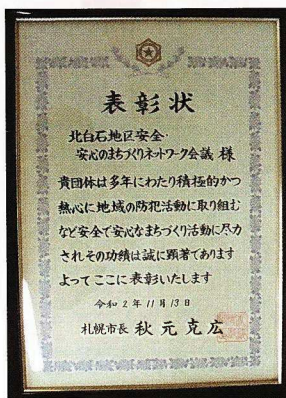 表彰状
北白石地区安全・
安心のまちづくりネットワーク会議 様
貴団体は多年にわたり積極的かつ
熱心に地域の防犯活動に取り組む
など安全で安心なまちづくり活動に尽力
されその功績は誠に顕著であります
よってここに表彰いたします
令和2年11月13日
札幌市長 秋元克広